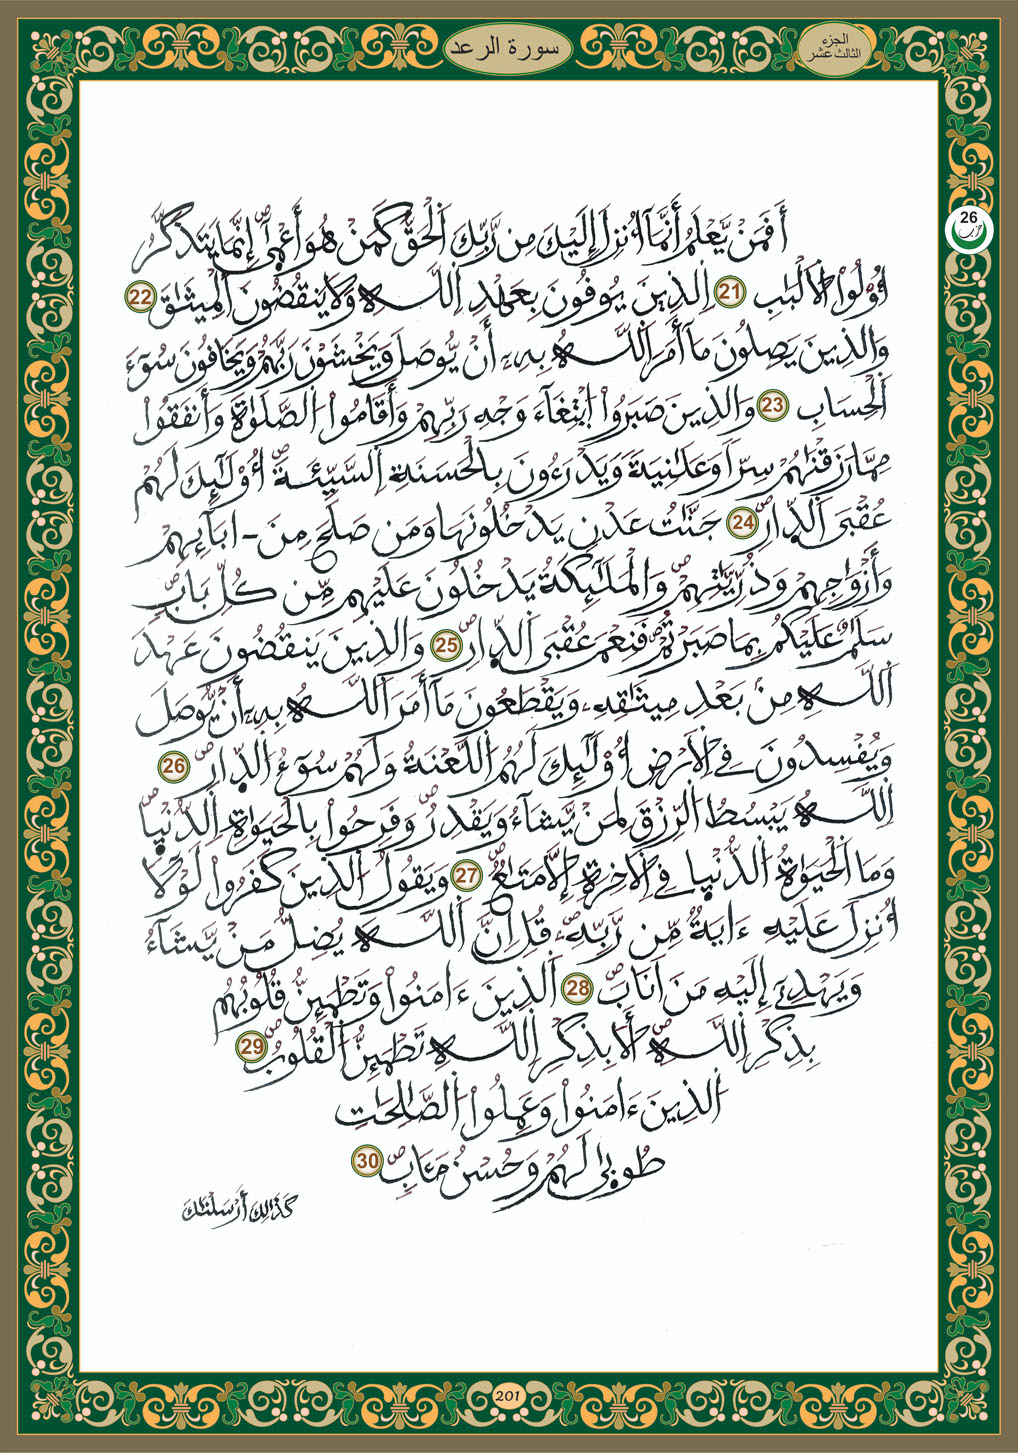 الجزء
الثالث عشر
سورة الرعد
26
حزب
أَفَمَنْ يَّعْلَمُ أَنَّمَآ أُنزِلَ إِلَيْكَ مِن رَّبِّكَ اَلْحَقُّ كَمَنْ هُوَ أَعْمَىٰٓ إِنَّمَا يَتَذَكَّرُ
أُوْلُواْ اُلْأَلْبَٰبِ 21 اِلذِينَ يُوفُونَ بِعَهْدِ اِللَّهِ وَلَا يَنقُضُونَ اَلْمِيثَٰقَ 22
وَالذِينَ يَصِلُونَ مَآ أَمَرَ اَللَّهُ بِهِۦٓ أَنْ يُّوصَلَ وَيَخْشَوْنَ رَبَّهُمْ وَيَخَافُونَ سُوٓءَ
اَلْحِسَابِ 23 وَالذِينَ صَبَرُواْ اُبْتِغَآءَ وَجْهِ رَبِّهِمْ وَأَقَامُواْ اُلصَّلَوٰةَ وَأَنفَقُواْ
مِمَّا رَزَقْنَٰهُمْ سِرّاً وَعَلَٰنِيَةً وَيَدْرَءُونَ بِالْحَسَنَةِ اِلسَّيِّئَةَ أُوْلَٰٓئِكَ لَهُمْ
عُقْبَى اَلدِّارِ 24 جَنَّٰتُ عَدْنٍ يَدْخُلُونَهَا وَمَن صَلَحَ مِنَ ـ ابَآئِهِمْ
وَأَزْوَٰجِهِمْ وَذُرِّيَّٰتِهِمْ وَالْمَلَٰٓئِكَةُ يَدْخُلُونَ عَلَيْهِم مِّن كُلِّ بَابٍ
سَلَٰمٌ عَلَيْكُم بِمَا صَبَرْتُمْ فَنِعْمَ عُقْبَى اَلدِّارِ 25 وَالذِينَ يَنقُضُونَ عَهْدَ
اَللَّهِ مِنۢ بَعْدِ مِيثَٰقِهِۦ وَيَقْطَعُونَ مَآ أَمَرَ اَللَّهُ بِهِۦٓ أَنْ يُّوصَلَ
وَيُفْسِدُونَ فِي اِلْأَرْضِ أُوْلَٰٓئِكَ لَهُمُ اُللَّعْنَةُ وَلَهُمْ سُوٓءُ اُلدِّارِ 26
اِللَّهُ يَبْسُطُ اُلرِّزْقَ لِمَنْ يَّشَآءُ وَيَقْدِرُ وَفَرِحُواْ بِالْحَيَوٰةِ اِلدُّنْيٰا
وَمَا اَلْحَيَوٰةُ اُلدُّنْيٰا فِي اِلْأَخِرَةِ إِلَّا مَتَٰعٌ 27 وَيَقُولُ اُلذِينَ كَفَرُواْ لَوْلَآ
أُنزِلَ عَلَيْهِ ءَايَةٌ مِّن رَّبِّهِۦ قُلِ اِنَّ اَللَّهَ يُضِلُّ مَنْ يَّشَآءُ
وَيَهْدِےٓ إِلَيْهِ مَنَ اَنَابَ 28 اَلذِينَ ءَامَنُواْ وَتَطْمَئِنُّ قُلُوبُهُم
بِذِكْرِ اِللَّهِ أَلَا بِذِكْرِ اِللَّهِ تَطْمَئِنُّ اُلْقُلُوبُ 29
اُلذِينَ ءَامَنُواْ وَعَمِلُواْ اُلصَّٰلِحَٰتِ
طُوبٰى لَهُمْ وَحُسْنُ مَـَٔابٍ 30
كَذَٰلِكَ أَرْسَلْنَٰكَ
201